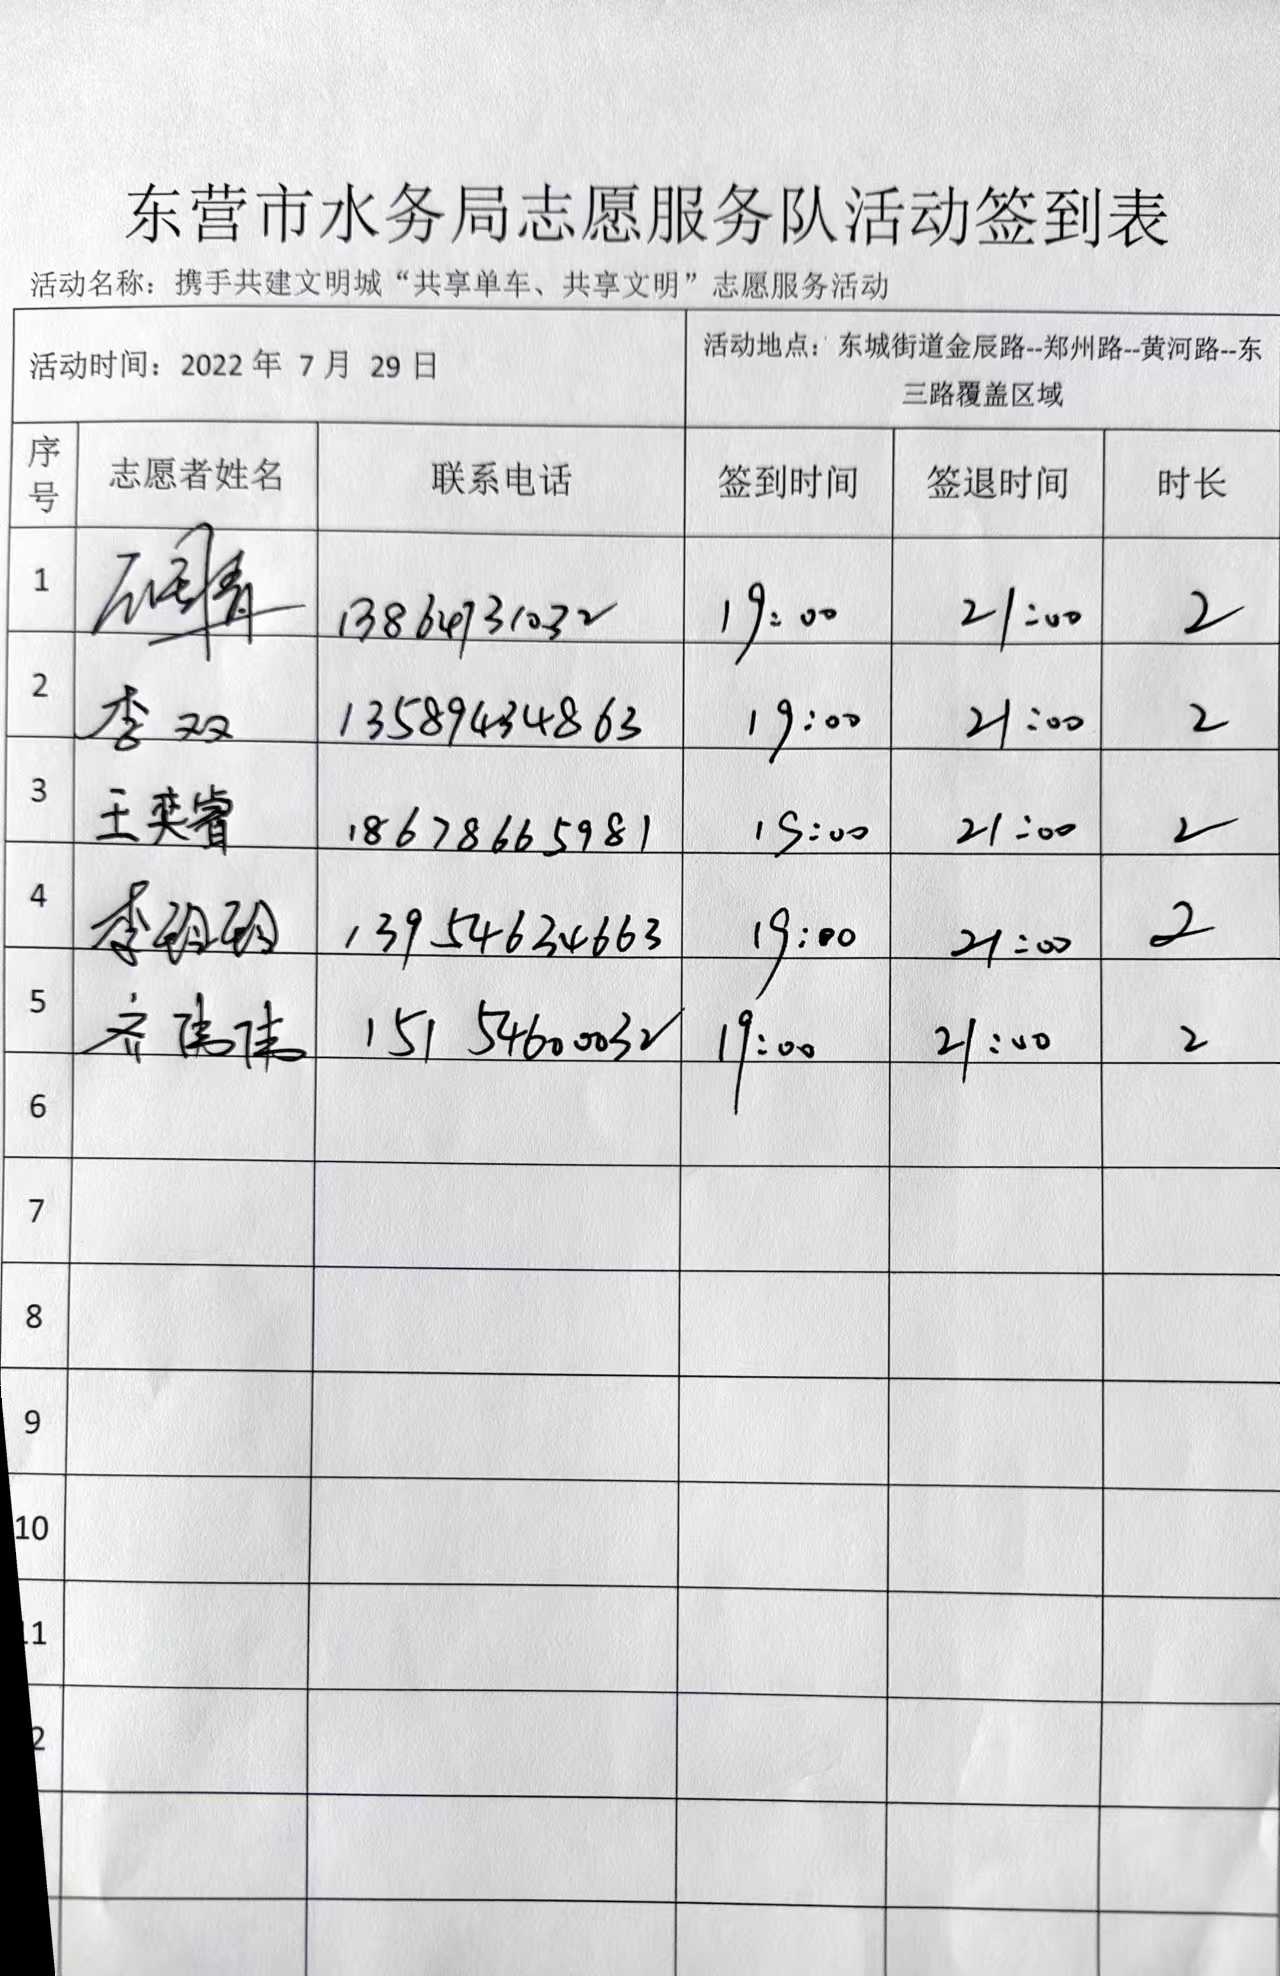 东营市水务局志愿服务队活动签到表
活动名称：携手共建文明城“共享单车、共享文明”志愿服务活动
活动时间：2022 年 7 月 29 日
活动地点：东城街道金辰路--郑州路--黄河路--东
三路覆盖区域
序号 志愿者姓名 联系电话 签到时间 签退时间 时长
1 13864731032 19:00 21:00 2
2 李双 13589434863 19:00 21:00 2
3 王奕睿 18678665981 19:00 21:00 2
4 李玲玲 13954634663 19:00 21:00 2
5 齐伟伟 15154600032 19:00 21:00 2
6
7
8
9
10
11
2